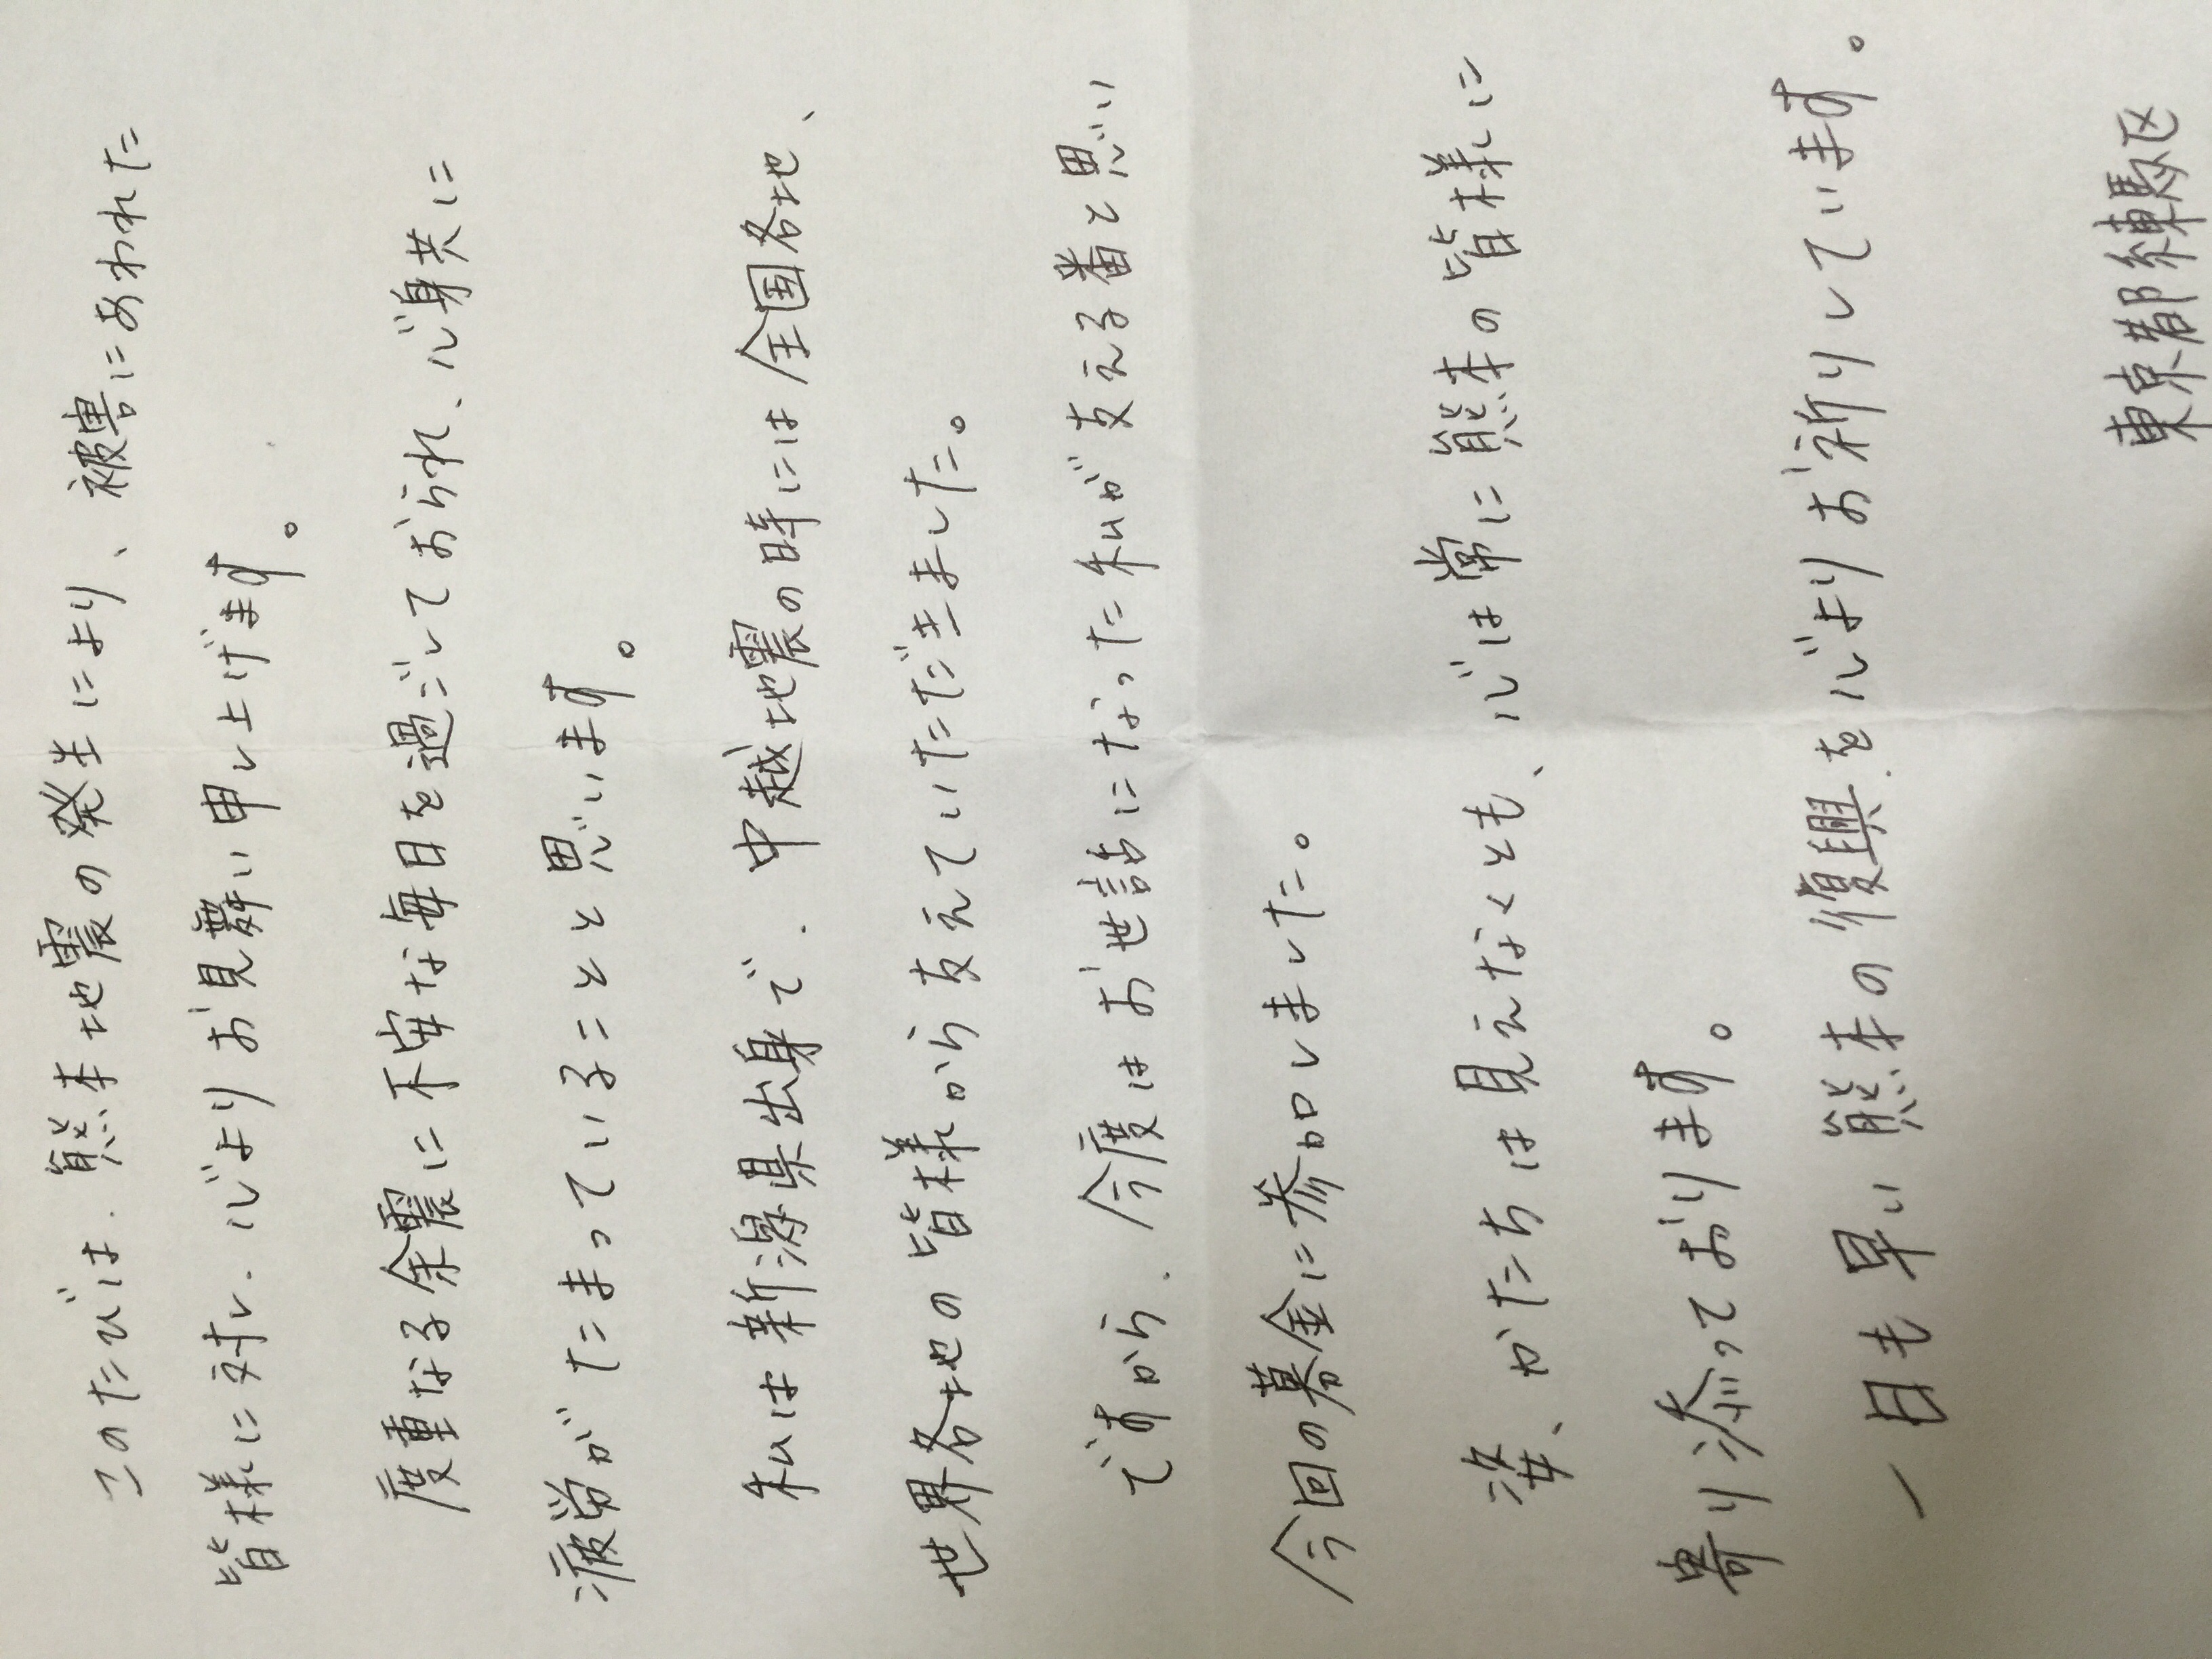 このたびは、熊本地震の発生により、被害にあわれた
皆様に対し、心よりお見舞い申し上げます。
度重なる余震に不安な毎日を過ごしておられ、心身共に
疲労がたまっていることと思います。
私は新潟県出身で、中越地震の時には全国各地、
世界各地の皆様から支えていただきました。
ですから、今度はお世話になった私が支える番と思い
今回の募金に参加しました。
姿、かたちは見えなくとも、心は常に熊本の皆様に
寄り添っております。
一日も早い熊本の復興を心よりお祈りしています。
東京都練馬区